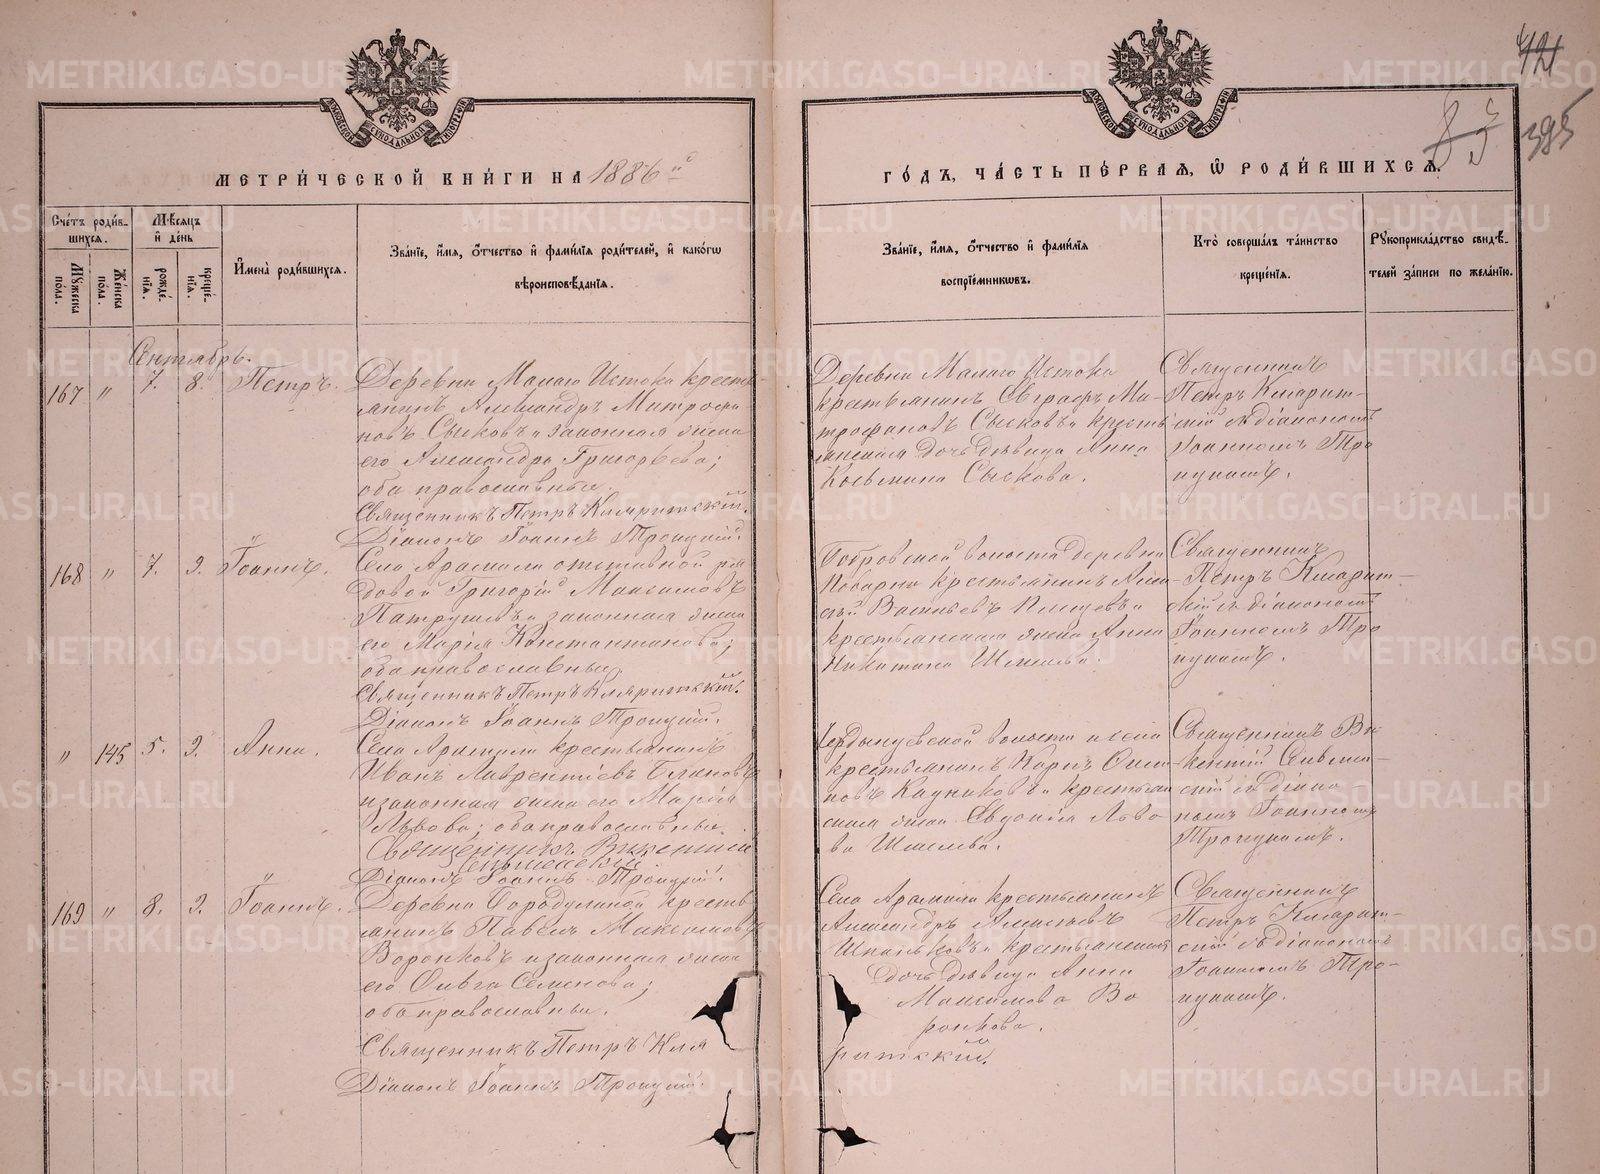 421
83
395
МОСКОВСКОЙ СѴНОДАЛЬНОЙ ТИПОГРАФІИ
МОСКОВСКОЙ СѴНОДАЛЬНОЙ ТИПОГРАФІИ
МЕТРИ́ЧЕСКОЙ КНИ́ГИ НА 1886й
ГО́ДЪ, ЧА́СТЬ ПЕ́РВАЯ, Ѽ РОДИ́ВШИХСЯ.
Сче́тъ роди́в-
шихся.
Мѣ́сяцъ
и҆ де́нь
Му́жеска по́ла.
Же́нска по́ла.
рожде́-
нїя.
креще́-
нїя.
И҆мена̀ роди́вшихся.
Зва́нїе, и҆́мя, ѻ҆́тчество и҆ фами́лїя роди́телей, и҆ како́гѡ
вѣроисповѣ́данїя.
Зва́нїе, и҆́мя, ѻ҆́тчество и҆ фами́лїя
воспрїе́мникѡвъ.
Кто̀ соверша́лъ та́инство
креще́нїя.
Рꙋкоприкла́дство свидѣ́-
телей за́писи по жела́нїю.
Сентябрь.
167 " 7. 8. Петръ.
Деревни Малаго Истока кресть-
янинъ Александръ Митрофа-
новъ Сысковъ и законная жена
его Александра Григорьева;
оба православные.
Священникъ Петръ Кляритскій.
Діаконъ Іоаннъ Троицкій.
Деревни Малаго Истока
крестьянинъ Евграфъ Ми-
трофановъ Сысковъ и кресть
янская дочь дѣвица Анна
Сыскова.
Священникъ
Петръ Кларит-
скій съ діакономъ
Іоанномъ Тро
ицкимъ.
168 " 7. 9. Іоаннъ.
Села Арамили отставной ря
довой Григорій Максимовъ
Патрушевъ и законная жена
его Марія Константинова;
оба православные.
Священникъ Петръ Кляритскій.
Діаконъ Іоаннъ Троицкій.
Бобровской волости деревни
крестьянинъ Алек-
сѣй Васильевъ
крестьянская жена Анна
Никитина
Священникъ
Петръ Кларит-
скій съ діакономъ
Іоанномъ Тро
ицкимъ.
" 145 5. 9. Анна.
Села Арамили крестьянинъ
Иванъ Лаврентіевъ Блиновъ
и законная жена его Марія
Львова; оба православные.
Священникъ Викентій
Діаконъ Іоаннъ Троицкій.
волости и села
крестьянинъ Карпъ
и крестьян
ская жена Евдокія Льво
ва
Священникъ Ви
кентій
скій съ діако
номъ Іоанномъ
Троицкимъ.
169 " 8. 9. Іоаннъ.
Деревни Бородулиной кресть
янинъ Павелъ Максимовъ
Воронковъ и законная жена
его Ольга Семенова;
оба православные.
Священникъ Петръ Кля
Діаконъ Іоаннъ Троицкій.
Села Арамили крестьянинъ
Александръ
и крестьянская
дочь дѣвица Анна
Максимова Во
ронкова.
ритскій.
Священникъ
Петръ Кларит-
скій съ діакономъ
Іоанномъ Тро-
ицкимъ.
METRIKI.GASO-URAL.RU